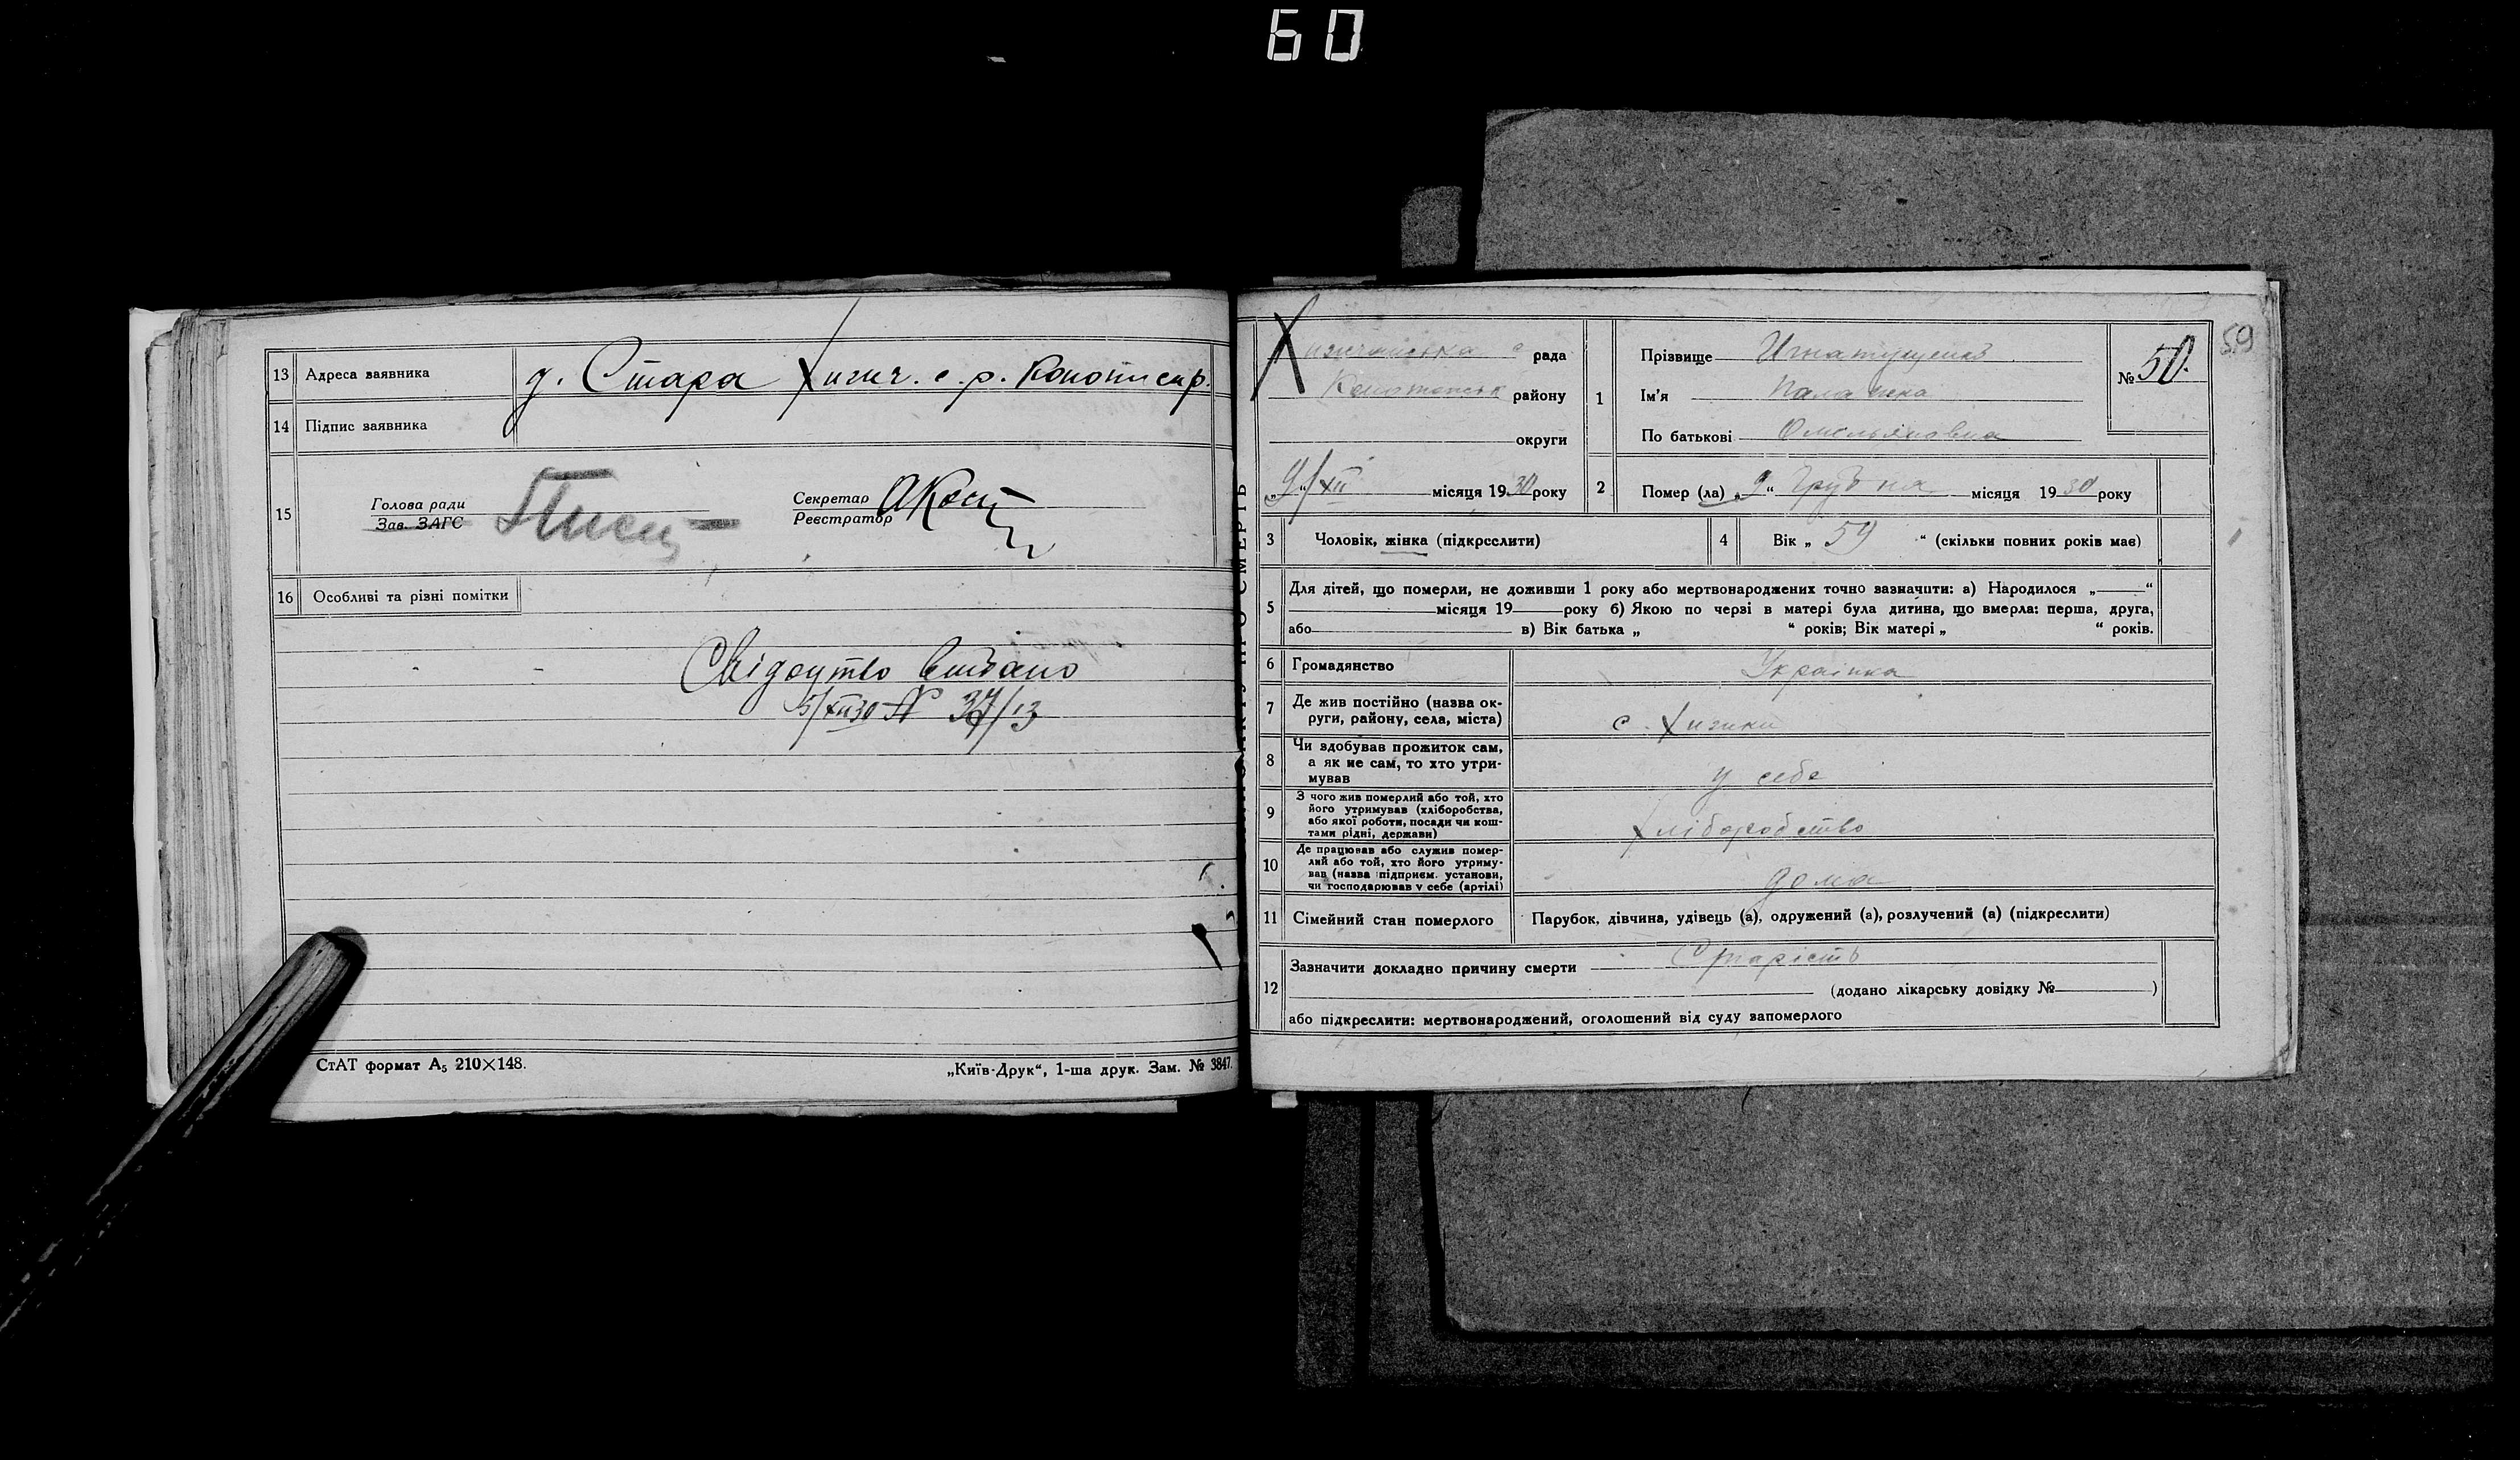 60
13 Адреса заявника д. Стара Хижч. с. р. Конотп скр.
14 Підпис заявника
15 Голова ради
Зав. ЗАГС
Секретар
Реєстратор
16 Особливі та різні помітки
Свідоцтво видано
5/XII 30 № 37/13
СтАТ формат А₅ 210×148.
„Київ-Друк“, 1-ша друк. Зам. № 3847.
59
с рада
Конотопськ району
округи
„9/XII місяця 1930 року
1 Прізвище
Ім'я
По батькові Омельяновна
№ 50.
2 Помер (ла) „9“ Грудня місяця 1930 року
3 Чоловік, жінка (підкреслити)
4 Вік „ 59 “ (скільки повних років має)
5 Для дітей, що померли, не доживши 1 року або мертвонароджених точно зазначити: а) Народилося „ “
місяця 19 року б) Якою по черзі в матері була дитина, що вмерла: перша, друга,
або в) Вік батька „ “ років; Вік матері „ “ років.
6 Громадянство Українка
7 Де жив постійно (назва ок-
руги, району, села, міста) с. Хижки
8 Чи здобував прожиток сам,
а як не сам, то хто утри-
мував у себе
9 З чого жив померлий або той, хто
його утримував (хліборобства,
або якої роботи, посади чи кош-
тами рідні, держави) Хліборобство
10 Де працював або служив помер-
лий або той, хто його утриму-
вав (назва підприєм. установи,
чи господарював у себе (артілі) дома
11 Сімейний стан померлого Парубок, дівчина, удівець (а), одружений (а), розлучений (а) (підкреслити)
12 Зазначити докладно причину смерти Старість
(додано лікарську довідку № )
або підкреслити: мертвонароджений, оголошений від суду запомерлого